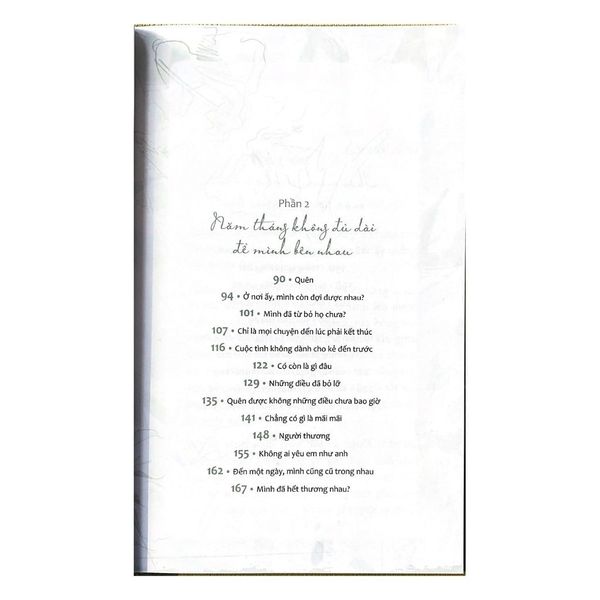 Phần 2
Năm tháng không đủ dài
để mình bên nhau
90 • Quên
94 • Ở nơi ấy, mình còn đợi được nhau?
101 • Mình đã từ bỏ họ chưa?
107 • Chỉ là mọi chuyện đến lúc phải kết thúc
116 • Cuộc tình không dành cho kẻ đến trước
122 • Có còn là gì đâu
129 • Những điều đã bỏ lỡ
135 • Quên được không những điều chưa bao giờ
141 • Chẳng có gì là mãi mãi
148 • Người thương
155 • Không ai yêu em như anh
162 • Đến một ngày, mình cũng cũ trong nhau
167 • Mình đã hết thương nhau?